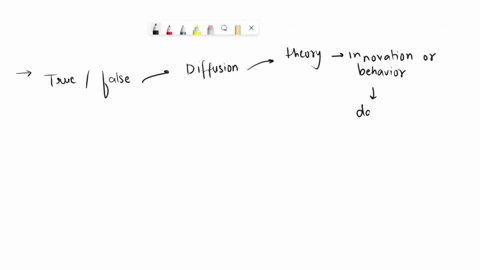 → True / false → Diffusion → theory → innovation or
behavior
↓
do